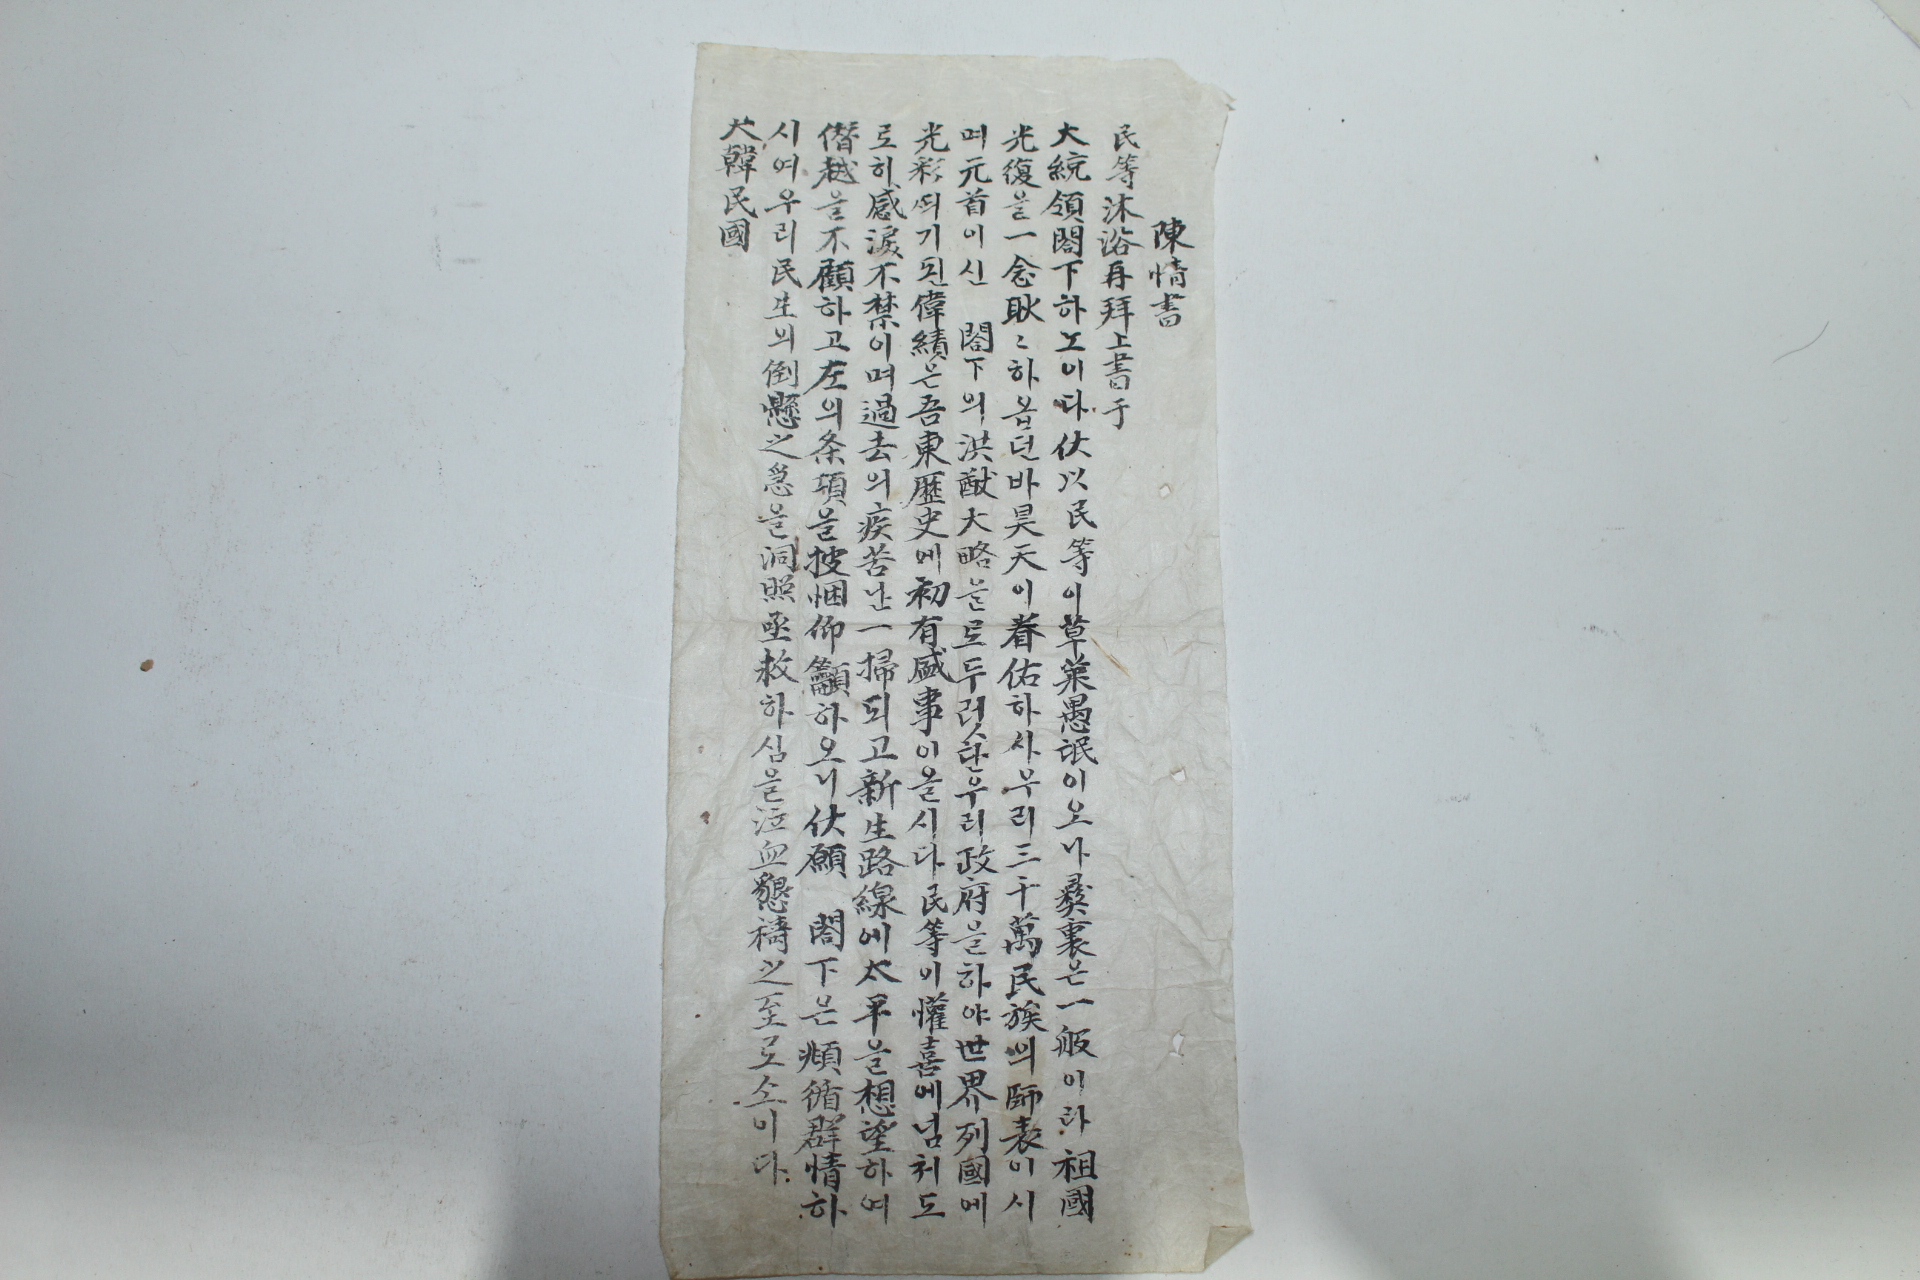 陳情書
民等沐浴再拜上書于
大統領閣下하노이다伏以民等이草萊愚氓이오나彛衷은一般이라祖國
光復을一念耿〻하옵던바昊天이眷佑하사우리三千萬民族의師表이시
며元首이신 閣下의洪猷大略을로두렷한우리政府을하야世界列國에
光彩띄기된偉績은吾東歷史에初有盛事이올시다民等이懽喜에넘처도
로히感淚不禁이며過去의疾苦난一掃되고新生路線에太平을想望하여
僭越을不顧하고左의条項을披悃仰籲하오니伏願 閣下은頫循群情하
시여우리民生의倒懸之急을洞照亟救하심을泣血懇禱之至로소이다.
大韓民國